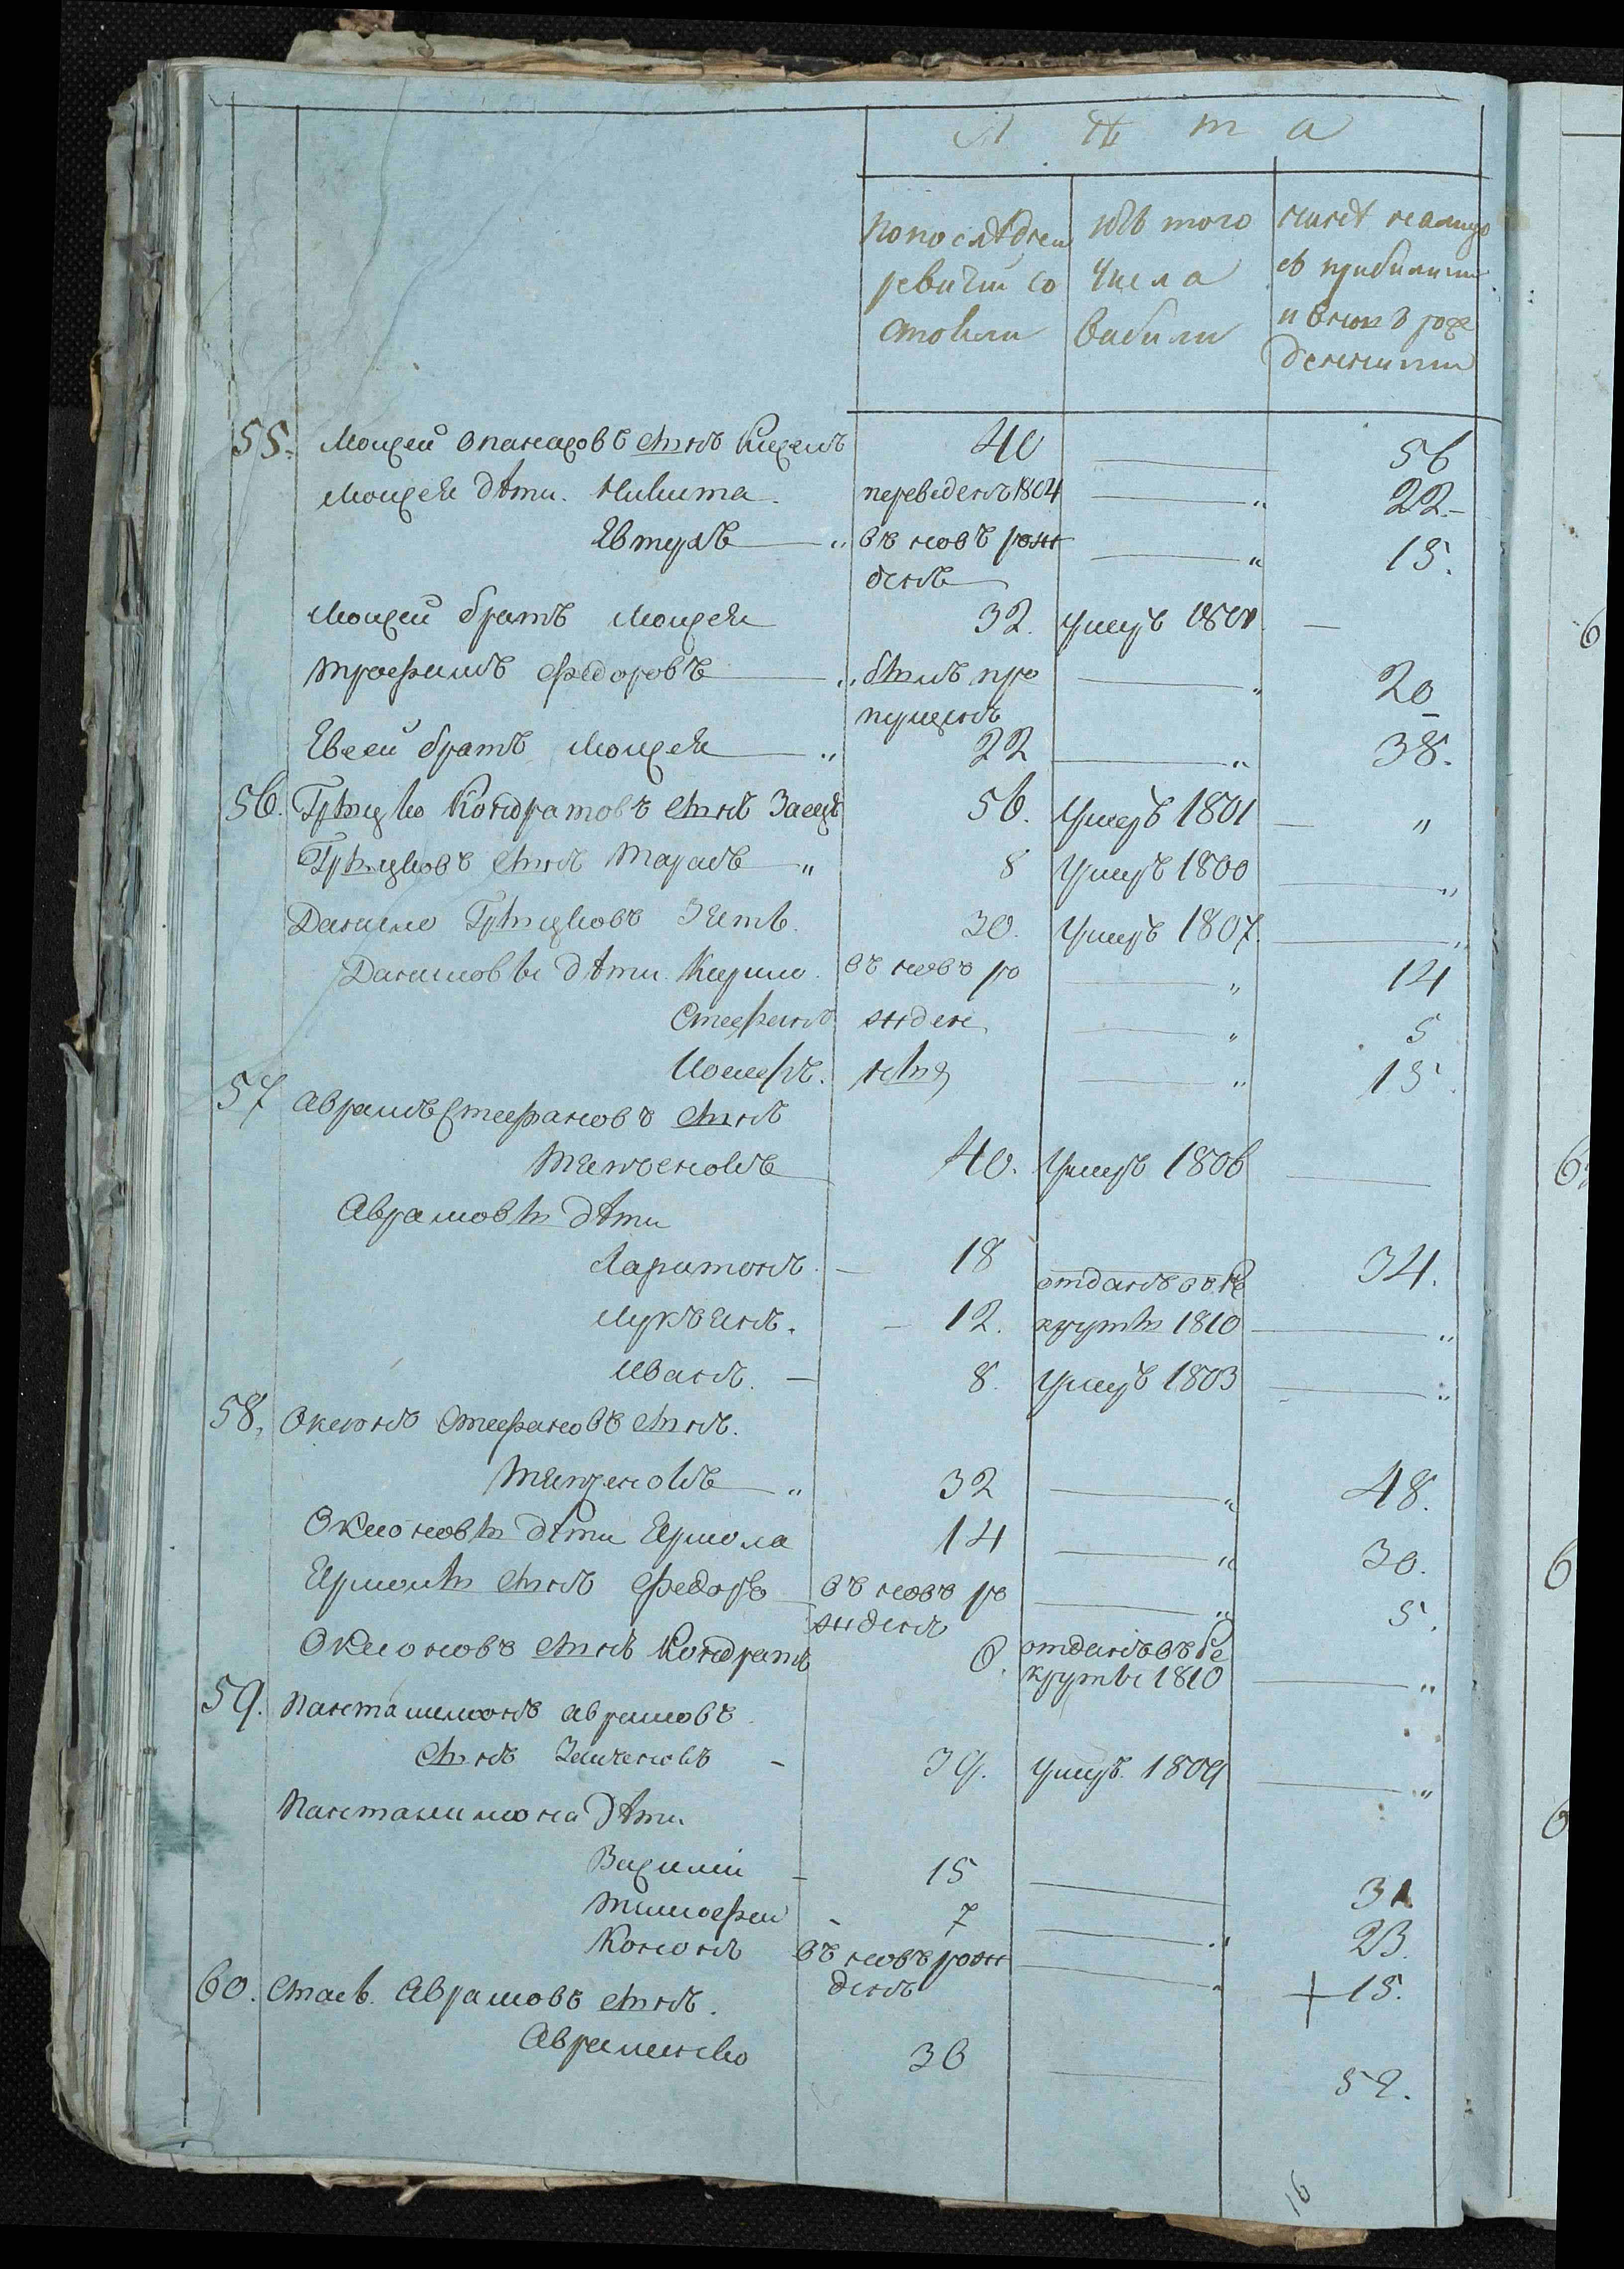 Л ѣ т а
по последнеи
ревизіи со
стояли
изъ того
числа
выбили
нынѣ на лицо
съ прибылими
и вновь рож
денними
55. Моисеи Опанасовъ сынъ 40 — 56
Моисея дѣти. Никита. переведенъ 1804 — 22.
Евтухъ — въ новъ рож — 15.
денъ
Моисеи братъ Моисея 32. умеръ 1801 —
Трофимъ Федоровъ — билъ про — 20
пущенъ
Евсеи братъ Моисея — 22 — 38.
56. Грыцко Кондратовъ сынъ Заецъ 56. умеръ 1801 — "
Грыцковъ сынъ Тарасъ " 8 умеръ 1800 — "
Данило Грыцковъ зять. 30. умеръ 1807. — "
Даниловы дѣти. Кирило. въ новъ ро — 14
Стефанъ жден — 5
Іосифъ. ныя — 15.
57 Аврамъ Стефановъ сынъ
40. умеръ 1806 —
Аврамовы дѣти
Харитонъ. — 18 34.
отданъ въ ре
Лукъянъ. — 12. круты 1810 — "
Иванъ. — 8. умеръ 1803 — "
58, Оксюнъ Стефановъ сынъ.
" 32 — 48.
Оксюновы дѣти Ярмола 14 — 30.
Ярмолы сынъ Федоръ въ новъ ро — 5.
жденъ
Оксюновъ сынъ Кондратъ 6. отданъ въ ре
круты 1810 — "
59. Панталимонъ Аврамовъ
сынъ - 39. умеръ 1809 — "
Панталимона дѣти
Василіи - 15 — 31
Тимофеи - 7 — 23.
Кононъ въ новъ рож — + 15.
денъ
60. Стасъ Аврамовъ сынъ.
Авраменко 36 — 52.
16